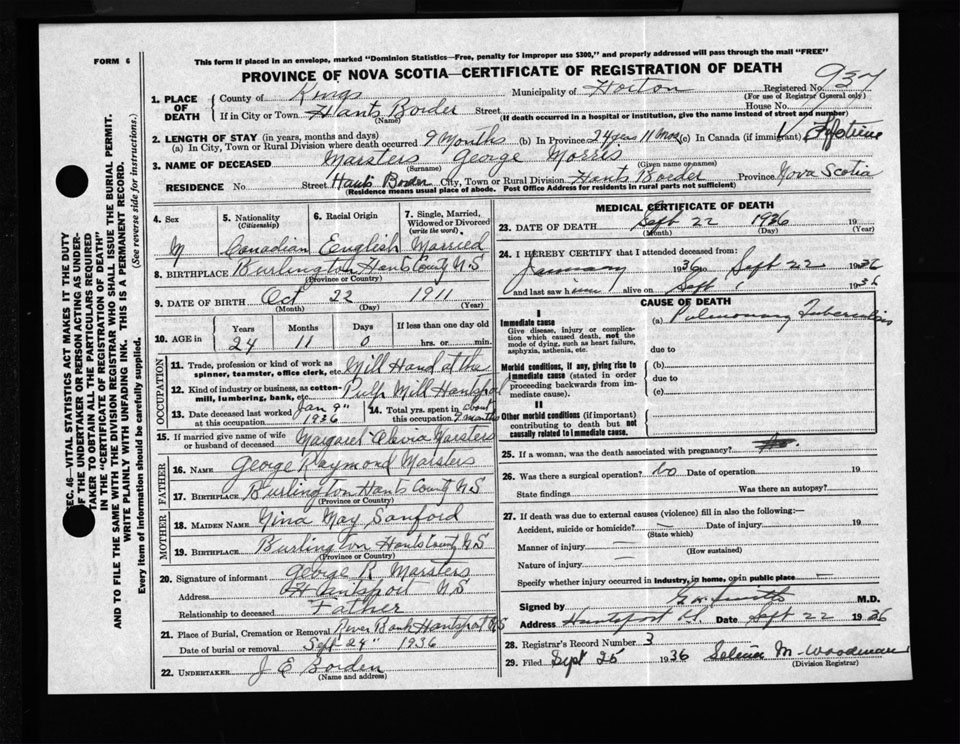 FORM 6
This form if placed in an envelope, marked "Dominion Statistics—Free, penalty for improper use $300," and properly addressed will pass through the mail "FREE"
PROVINCE OF NOVA SCOTIA—CERTIFICATE OF REGISTRATION OF DEATH
Registered No. 937
(For use of Registrar General only)
1. PLACE OF DEATH
County of Kings Municipality of Horton
If in City or Town Hants Border Street House No.
(Name) (If death occurred in a hospital or institution, give the name instead of street and number)
2. LENGTH OF STAY (in years, months and days)
(a) In City, Town or Rural Division where death occurred 9 Months (b) In Province 24 yrs 11 mos (c) In Canada (if immigrant) Lifetime
3. NAME OF DECEASED Marsters George Morris
(Surname) (Given name or names)
RESIDENCE No. Street Hants Border City, Town or Rural Division Hants Border Province Nova Scotia
(Residence means usual place of abode. Post Office Address for residents in rural parts not sufficient)
4. Sex
M
5. Nationality (Citizenship)
Canadian
6. Racial Origin
English
7. Single, Married, Widowed or Divorced (write the word)
Married
8. BIRTHPLACE Burlington Hants County N S
(Province or Country)
9. DATE OF BIRTH Oct 22 1911
(Month) (Day) (Year)
10. AGE in Years Months Days If less than one day old
24 11 0 hrs. or min.
OCCUPATION
11. Trade, profession or kind of work as spinner, teamster, office clerk, etc. Mill Hand at the
12. Kind of industry or business, as cotton-mill, lumbering, bank, etc. Pulp Mill Hantsport
13. Date deceased last worked at this occupation Jan 9" 1936
14. Total yrs. spent in this occupation about 9 months
15. If married give name of wife or husband of deceased Margaret Marsters
FATHER
16. NAME George Raymond Marsters
17. BIRTHPLACE Burlington Hants County N S
(Province or Country)
MOTHER
18. MAIDEN NAME Nina May Sanford
19. BIRTHPLACE Burlington Hants County N S
(Province or Country)
20. Signature of informant George R Marsters
Address Hantsport N S
Relationship to deceased Father
21. Place of Burial, Cremation or Removal River Bank Hantsport N S
Date of burial or removal Sept 24" 1936
22. UNDERTAKER J E Borden
(Name and address)
MEDICAL CERTIFICATE OF DEATH
23. DATE OF DEATH Sept 22 1936 19
(Month) (Day) (Year)
24. I HEREBY CERTIFY that I attended deceased from:
January 1936 to Sept 22 1936
and last saw him alive on Sept 1 1936
CAUSE OF DEATH
I
Immediate cause
Give disease, injury or complication which caused death, not the mode of dying, such as heart failure, asphyxia, asthenia, etc.
(a) Pulmonary Tuberculosis
due to
Morbid conditions, if any, giving rise to immediate cause (stated in order proceeding backwards from immediate cause).
(b)
due to
(c)
II
Other morbid conditions (if important) contributing to death but not causally related to immediate cause.
25. If a woman, was the death associated with pregnancy?
26. Was there a surgical operation? No Date of operation 19
State findings Was there an autopsy?
27. If death was due to external causes (violence) fill in also the following:—
Accident, suicide or homicide? — Date of injury 19
(State which)
Manner of injury —
(How sustained)
Nature of injury —
Specify whether injury occurred in industry, in home, or in public place —
Signed by M.D.
Address Hantsport Date Sept 22 1936
28. Registrar's Record Number 3
29. Filed Sept 25 1936 Selina M. Woodman
(Division Registrar)
SEC. 46—VITAL STATISTICS ACT MAKES IT THE DUTY
OF THE UNDERTAKER OR PERSON ACTING AS UNDER-
TAKER TO OBTAIN ALL THE PARTICULARS REQUIRED
IN THE "CERTIFICATE OF REGISTRATION OF DEATH"
AND TO FILE THE SAME WITH THE DIVISION REGISTRAR WHO SHALL ISSUE THE BURIAL PERMIT.
WRITE PLAINLY WITH UNFADING INK. THIS IS A PERMANENT RECORD.
Every item of information should be carefully supplied. (See reverse side for instructions.)